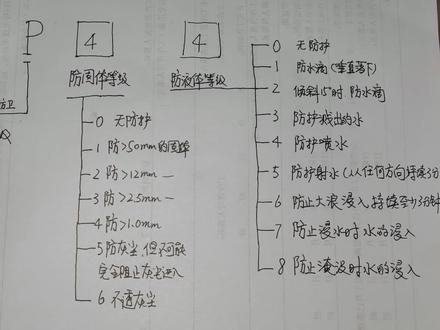 P 4 4
防固体等级
防液体等级
防卫
0 无防护
1 防>50mm的固体
2 防>12mm —
3 防>2.5mm —
4 防>1.0mm
5 防灰尘,但不可能
完全阻止灰尘进入
6 不透灰尘
0 无防护
1 防水滴(垂直落下)
2 倾斜15°时,防水滴
3 防护溅出的水
4 防护喷水
5 防护射水(从任何方向持续3分
6 防止大浪浸入,持续至少3分钟
7 防止浸水时水的浸入
8 防止淹没时水的浸入